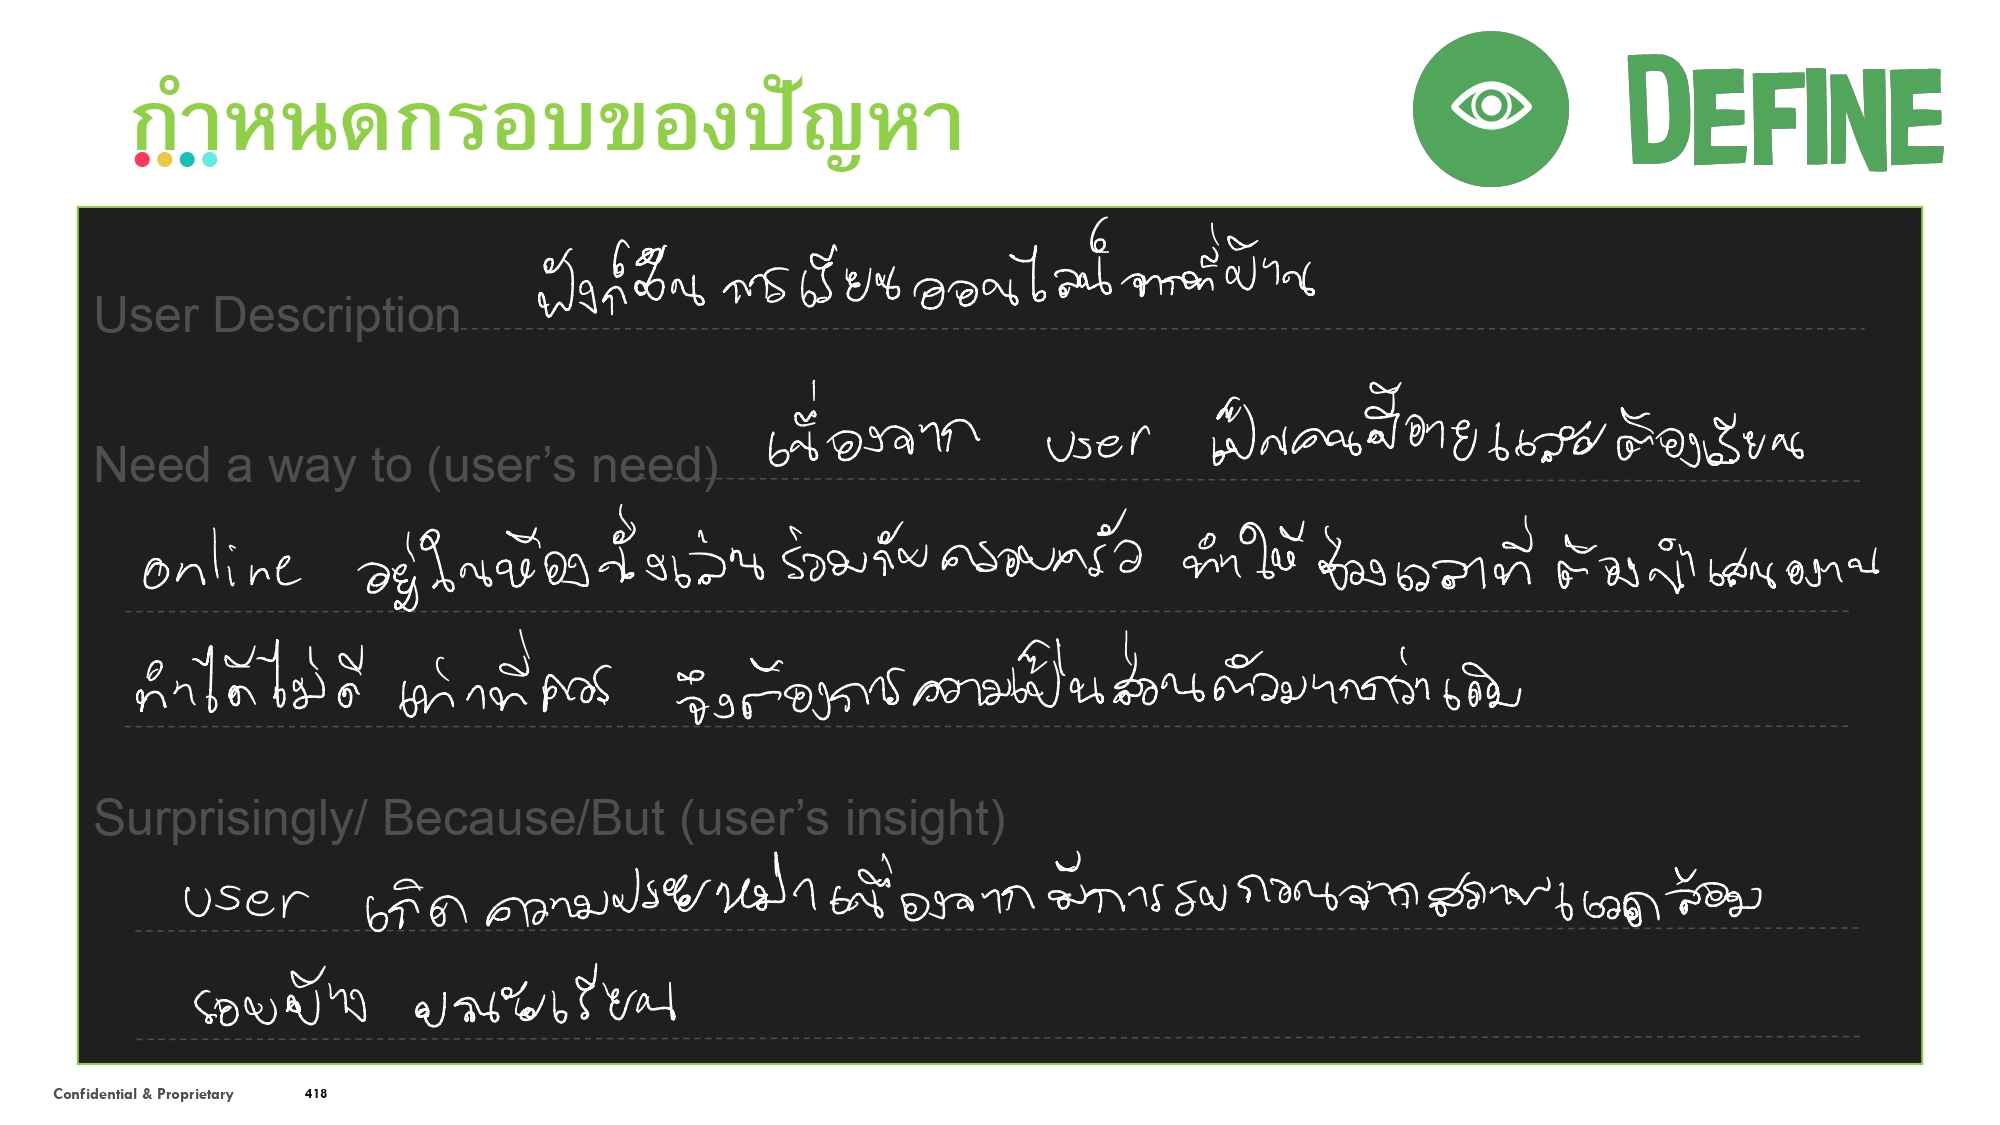 กำหนดกรอบของปัญหา
DEFINE
User Description ฟังก์ชั่น การเรียนออนไลน์จากที่บ้าน
Need a way to (user's need) เนื่องจาก user เป็นคนขี้อายและต้องเรียน
online อยู่ในห้องนั่งเล่น ร่วมกับครอบครัว ทำให้ ช่วงเวลาที่ ต้องนำเสนองาน
ทำได้ไม่ดี เท่าที่ควร จึงต้องการความเป็นส่วนตัวมากกว่าเดิม
Surprisingly/ Because/But (user's insight)
user เกิด ความประหม่า เนื่องจาก มีการรบกวนจากสภาพแวดล้อม
รอบข้าง ขณะเรียน
Confidential & Proprietary 418